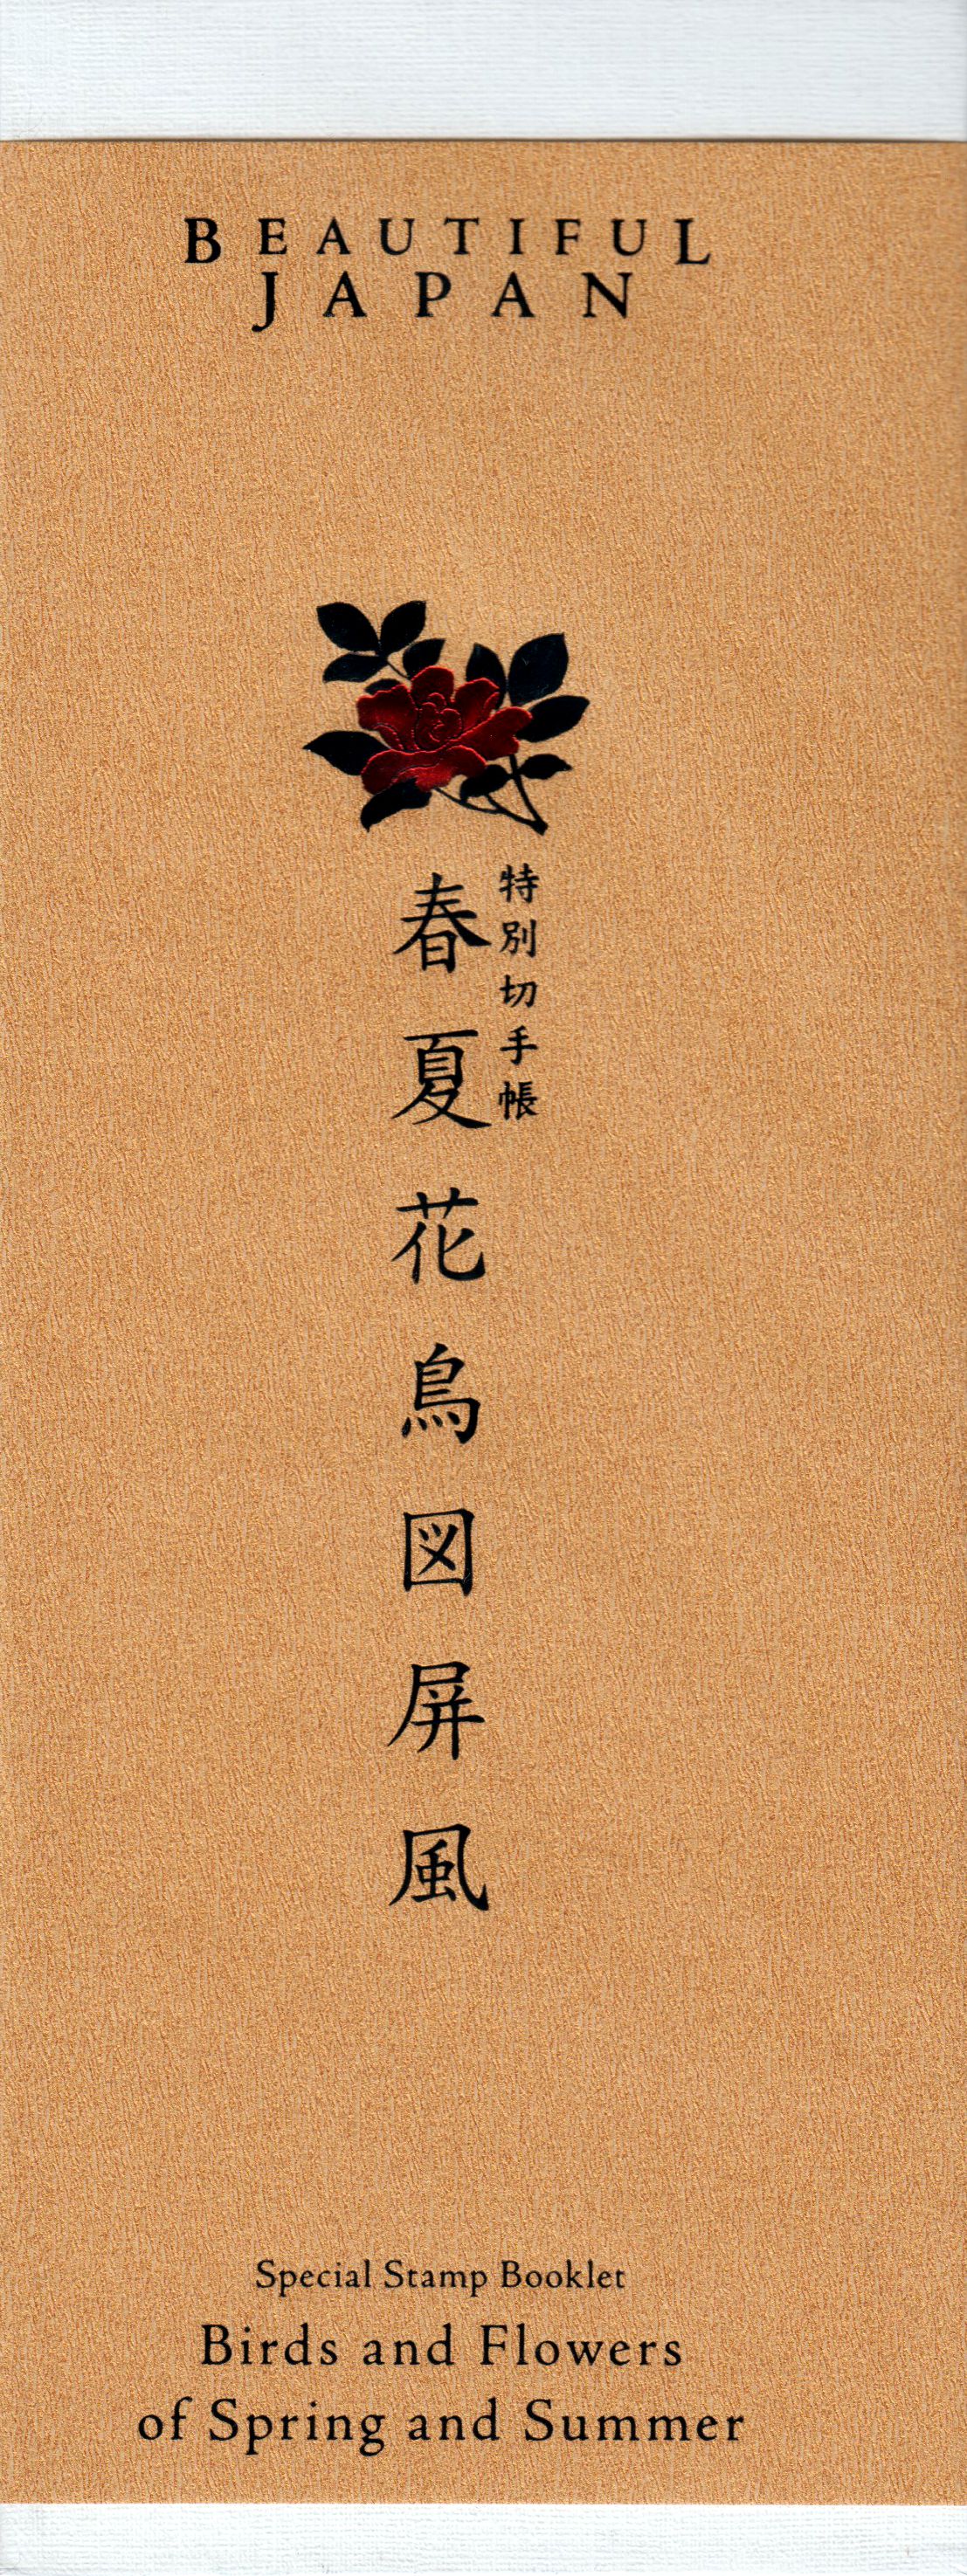 BEAUTIFUL
JAPAN
特別切手帳
春夏花鳥図屏風
Special Stamp Booklet
Birds and Flowers
of Spring and Summer